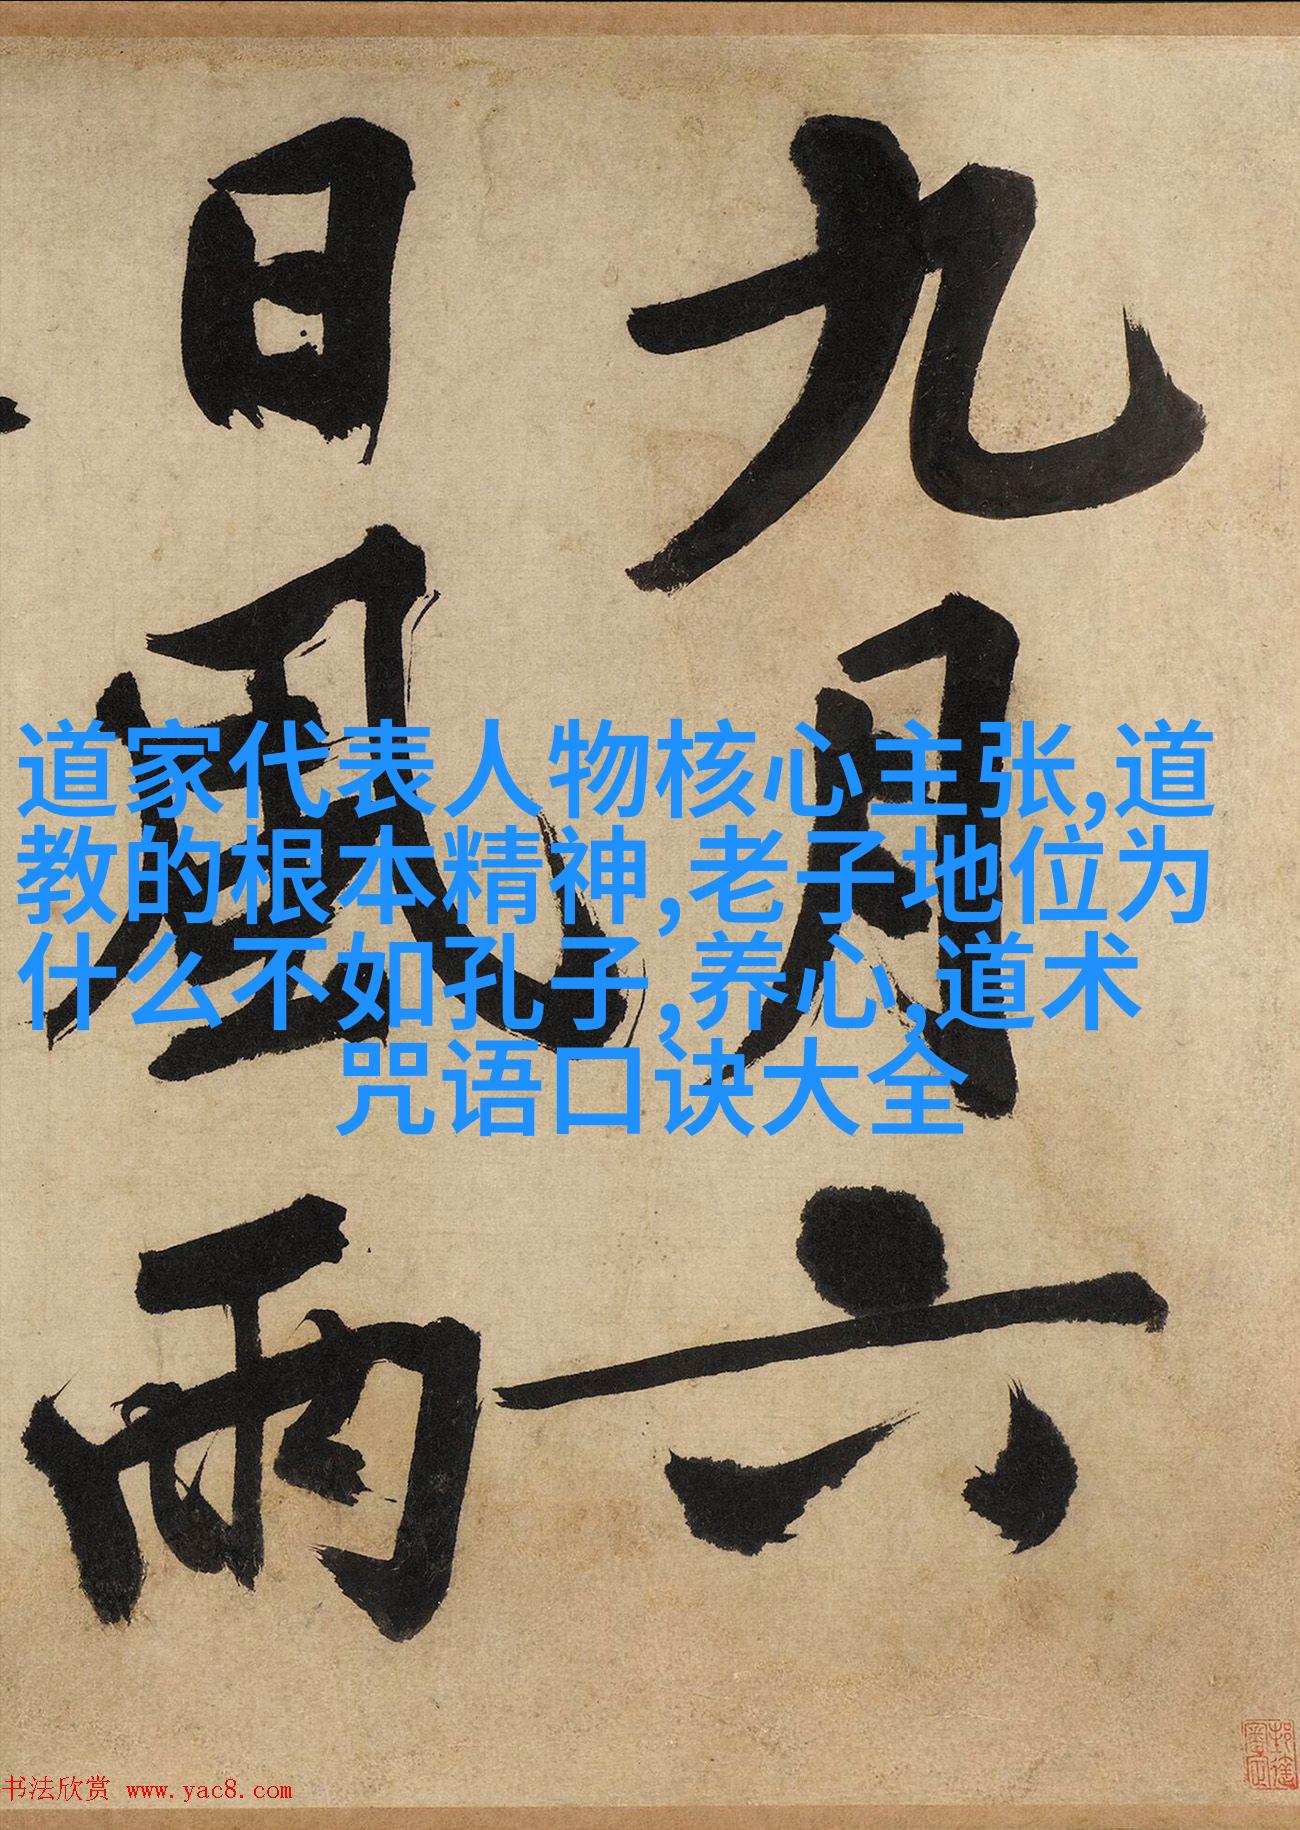 九月六
日風雨
道家代表人物核心主张,道
教的根本精神,老子地位为
什么不如孔子,养心,道术
咒语口诀大全
书法欣赏 www.yac8.com